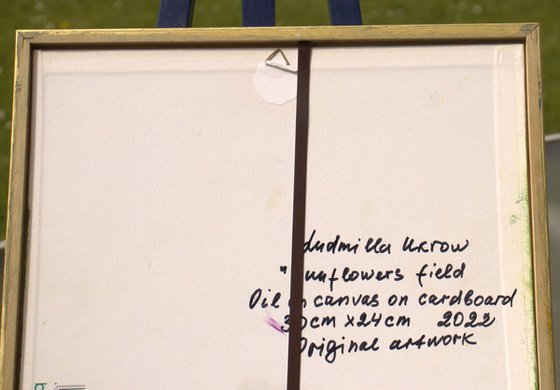 Ludmilla Ukrow
"Sunflowers field
Oil on canvas on cardboard
30cm x24cm 2022
Original artwork